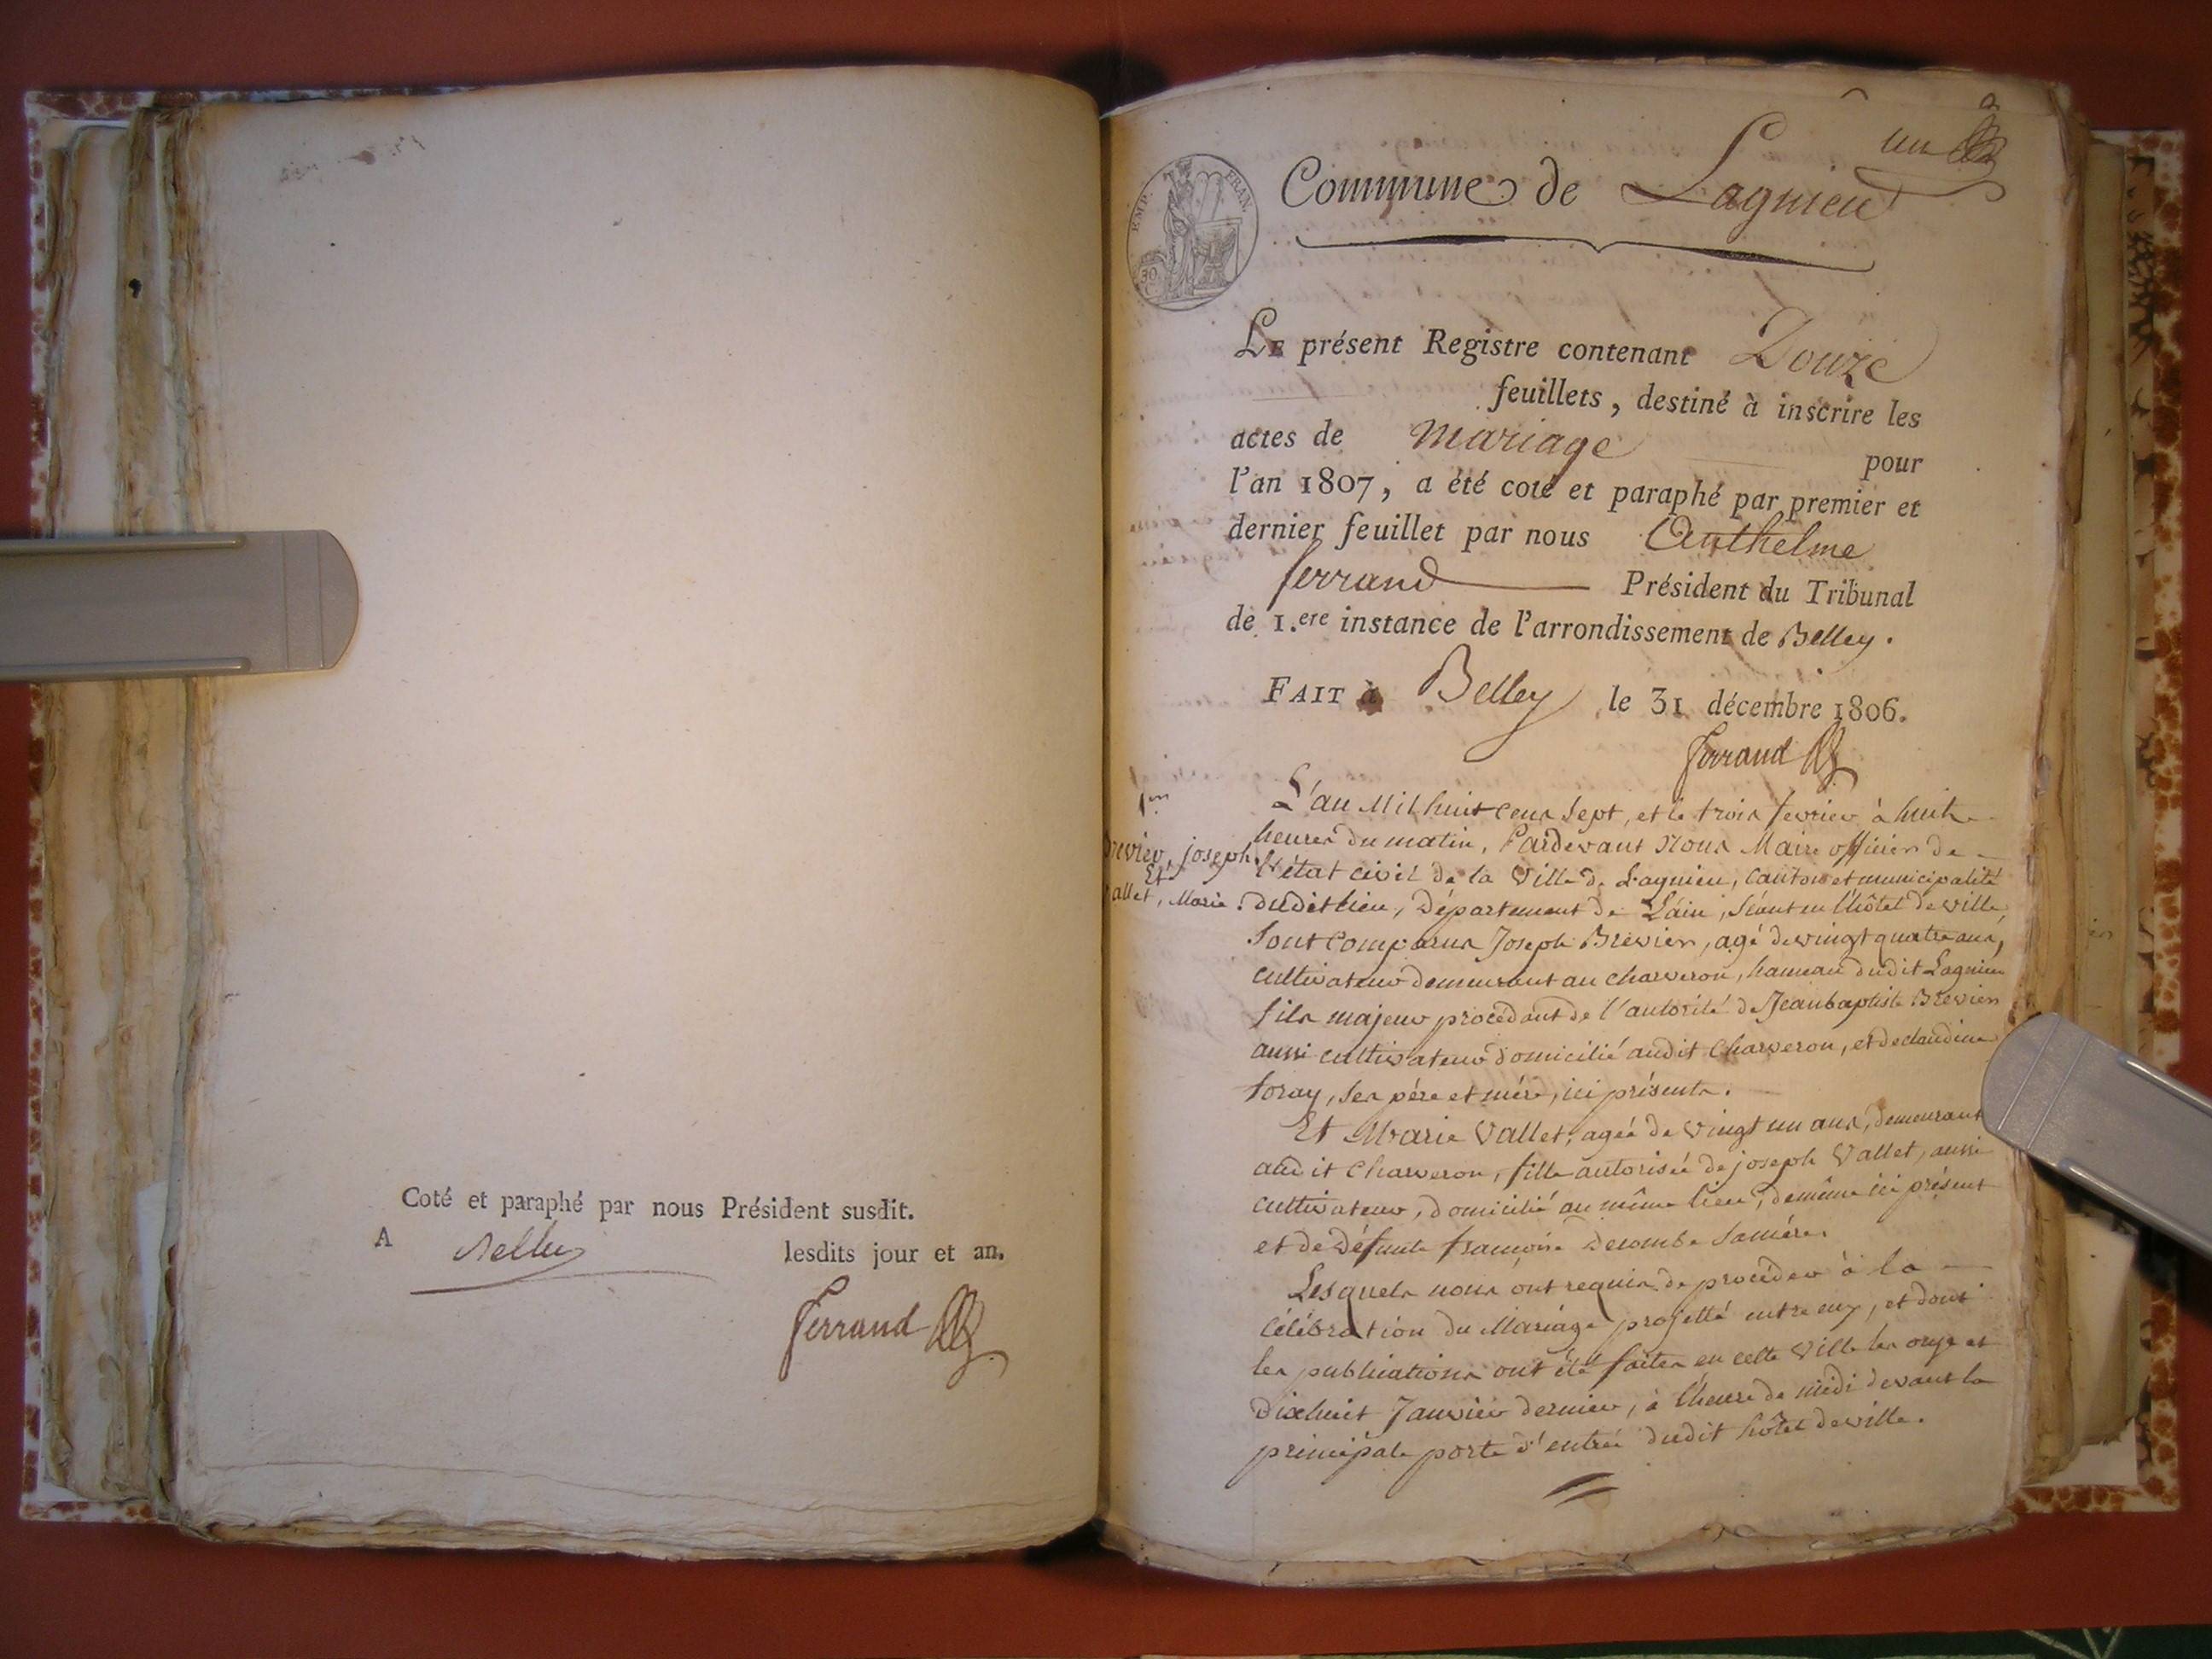 Coté et paraphé par nous Président susdit.
A Belley lesdits jour et an.
Ferrand
un
EMP. FRAN.
30 C
Commune de Lagnieu
LE présent Registre contenant Douze
feuillets, destiné à inscrire les
actes de mariage pour
l'an 1807, a été coté et paraphé par premier et
dernier feuillet par nous Anthelme
ferrand Président du Tribunal
de 1.ere instance de l'arrondissement de Belley.
FAIT à Belley le 31 décembre 1806.
Ferrand
1er
Brevier, joseph
Et
Vallet, Marie.
L'an Mil huit cens Sept, et le trois fevrier à huit
heures du matin, Pardevant Nous Maire officier de
l'état civil de la Ville de Lagnieu, Canton et municipalité
dudit lieu, Département de L'ain, Séant en l'hôtel de ville,
Sont Comparus Joseph Brevier, agé de vingt quatre ans,
cultivateur demeurant au Charveron, hameau dudit Lagnieu
fils majeur procédant de l'autorité de Jeanbaptiste Brevier
aussi cultivateur domicilié audit Charveron, et de claudine
Soray, ses père et mère, ici présents.
Et Marie Vallet, agée de Vingt un ans, demeurant
audit Charveron, fille autorisée de joseph Vallet, aussi
cultivateur, domicilié au même lieu, de même ici présent
et de défunte françoise Decombe Sa mére.
Lesquels nous ont requis de procéder à la
Célébration du Mariage projetté entre eux, et dont
les publications ont été faites en cette Ville les onze et
Dixhuit Janvier dernier, à l'heure de midi devant la
principale porte d'entrée dudit hôtel de ville.